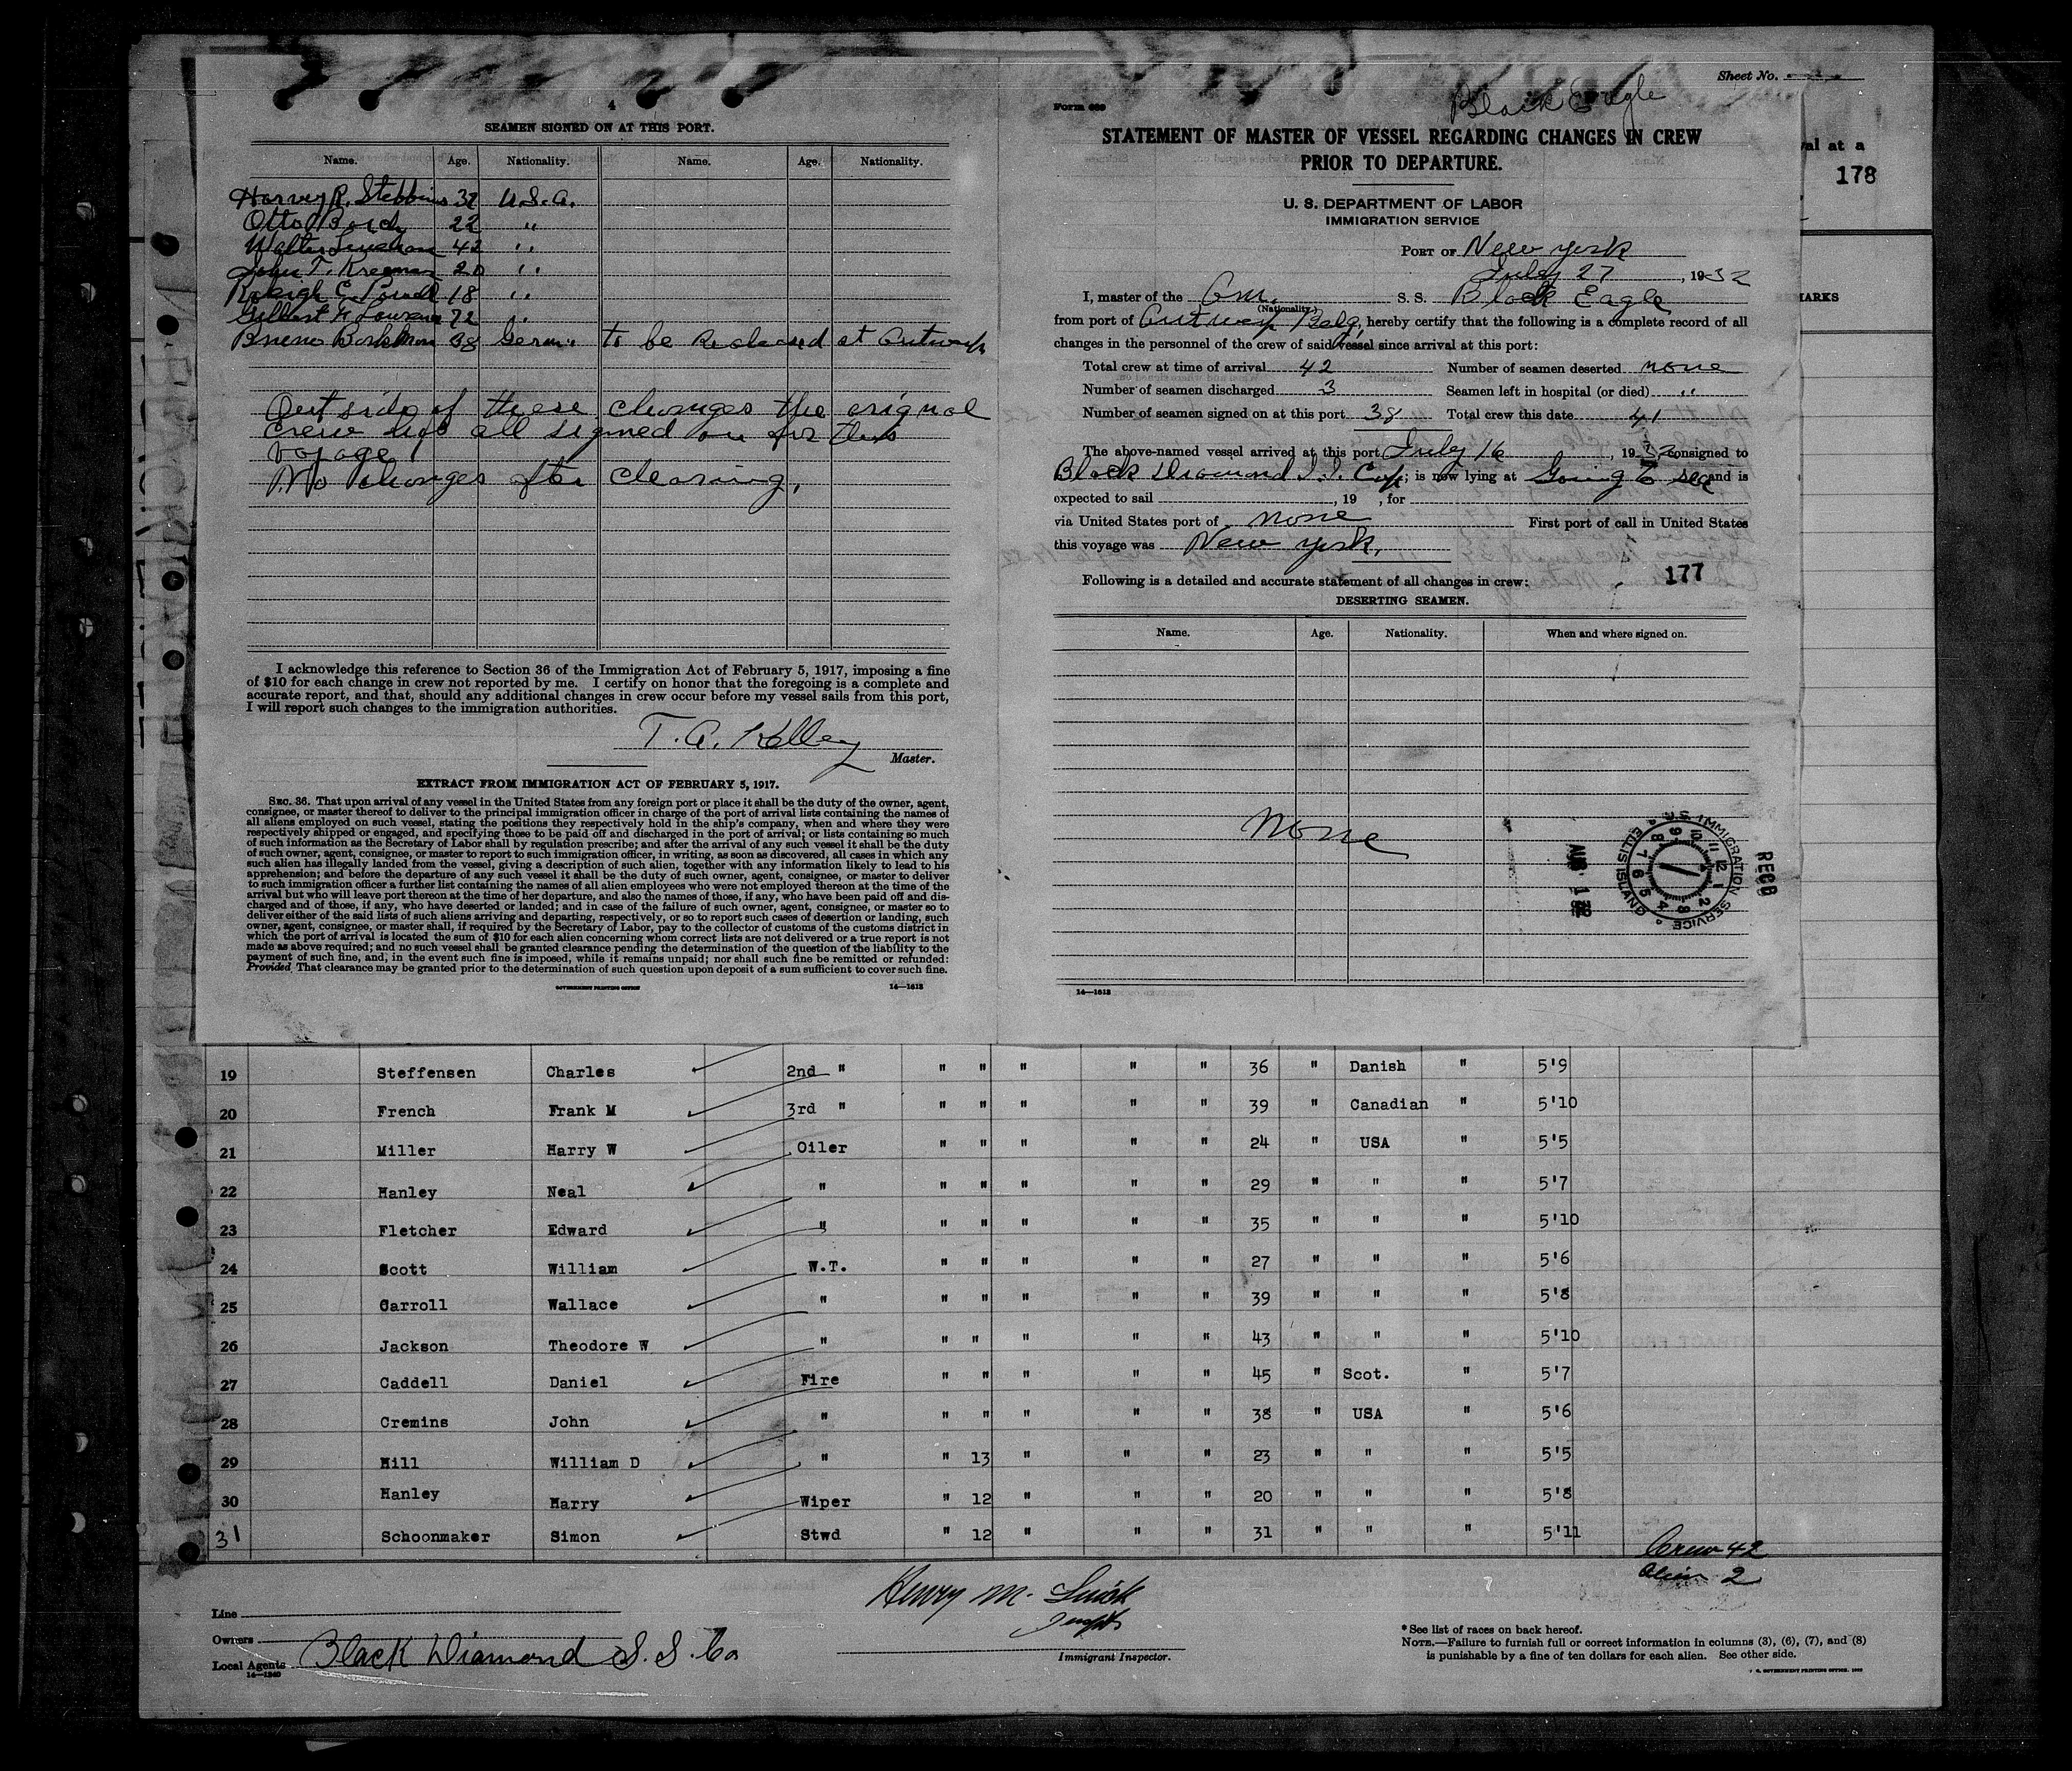 4
SEAMEN SIGNED ON AT THIS PORT.
Name. Age. Nationality. Name. Age. Nationality.
Harvey R. Stebbins 37 U.S.A.
Otto 22 "
Walter 42 "
John T. 20 "
Raleigh C. Powell 18 "
Gilbert 72 "
Bruno 38 Germ. to be Replaced at Antwerp
Outside of these changes the orignal
crew all signed on for this
voyage
No changes after clearing.
I acknowledge this reference to Section 36 of the Immigration Act of February 5, 1917, imposing a fine
of $10 for each change in crew not reported by me. I certify on honor that the foregoing is a complete and
accurate report, and that, should any additional changes in crew occur before my vessel sails from this port,
I will report such changes to the immigration authorities.
T. A. Kelley
Master.
EXTRACT FROM IMMIGRATION ACT OF FEBRUARY 5, 1917.
SEC. 36. That upon arrival of any vessel in the United States from any foreign port or place it shall be the duty of the owner, agent,
consignee, or master thereof to deliver to the principal immigration officer in charge of the port of arrival lists containing the names of
all aliens employed on such vessel, stating the positions they respectively hold in the ship's company, when and where they were
respectively shipped or engaged, and specifying those to be paid off and discharged in the port of arrival; or lists containing so much
of such information as the Secretary of Labor shall by regulation prescribe; and after the arrival of any such vessel it shall be the duty
of such owner, agent, consignee, or master to report to such immigration officer, in writing, as soon as discovered, all cases in which any
such alien has illegally landed from the vessel, giving a description of such alien, together with any information likely to lead to his
apprehension; and before the departure of any such vessel it shall be the duty of such owner, agent, consignee, or master to deliver
to such immigration officer a further list containing the names of all alien employees who were not employed thereon at the time of the
arrival but who will leave port thereon at the time of her departure, and also the names of those, if any, who have been paid off and dis-
charged and of those, if any, who have deserted or landed; and in case of the failure of such owner, agent, consignee, or master so to
deliver either of the said lists of such aliens arriving and departing, respectively, or so to report such cases of desertion or landing, such
owner, agent, consignee, or master shall, if required by the Secretary of Labor, pay to the collector of customs of the customs district in
which the port of arrival is located the sum of $10 for each alien concerning whom correct lists are not delivered or a true report is not
made as above required; and no such vessel shall be granted clearance pending the determination of the question of the liability to the
payment of such fine, and, in the event such fine is imposed, while it remains unpaid; nor shall such fine be remitted or refunded:
Provided That clearance may be granted prior to the determination of such question upon deposit of a sum sufficient to cover such fine.
GOVERNMENT PRINTING OFFICE 14—1613
Sheet No.
Form 689
Black Eagle
STATEMENT OF MASTER OF VESSEL REGARDING CHANGES IN CREW
PRIOR TO DEPARTURE.
U. S. DEPARTMENT OF LABOR
IMMIGRATION SERVICE
PORT OF New York
July 27, 1932
I, master of the Am. S. S. Black Eagle
(Nationality.)
from port of Antwerp Belg, hereby certify that the following is a complete record of all
changes in the personnel of the crew of said vessel since arrival at this port:
Total crew at time of arrival 42 Number of seamen deserted none
Number of seamen discharged 3 Seamen left in hospital (or died) "
Number of seamen signed on at this port 38 Total crew this date 41
The above-named vessel arrived at this port July 16, 1932 consigned to
Black Diamond S.S. Corp; is now lying at Going to sea and is
expected to sail , 19 , for
via United States port of none First port of call in United States
this voyage was New York.
Following is a detailed and accurate statement of all changes in crew: 177
DESERTING SEAMEN.
Name. Age. Nationality. When and where signed on.
None
RECD
U.S. IMMIGRATION SERVICE ELLIS ISLAND
12 1 2 3 4 5 6 7 8 9 10 11
AUG 1 32
14—1613
val at a
178
REMARKS
19 Steffensen Charles 2nd " " " " " " 36 " Danish " 5'9
20 French Frank M 3rd " " " " " " 39 " Canadian " 5'10
21 Miller Harry W Oiler " " " " " 24 " USA " 5'5
22 Hanley Neal " " " " " " 29 " " " 5'7
23 Fletcher Edward " " " " " " 35 " " " 5'10
24 Scott William W.T. " " " " " 27 " " " 5'6
25 Carroll Wallace " " " " " " 39 " " " 5'8
26 Jackson Theodore W " " " " " " 43 " " " 5'10
27 Caddell Daniel Fire " " " " " 45 " Scot. " 5'7
28 Cremins John " " " " " " 38 " USA " 5'6
29 Hill William D " " 13 " " " 23 " " " 5'5
30 Hanley Harry Wiper " 12 " " " 20 " " " 5'8
31 Schoonmaker Simon Stwd " 12 " " " 31 " " " 5'11
Crew 42
Alien 2
Henry M.
Immigrant Inspector.
Line
Owners
Local Agents Black Diamond S.S. Co
14—1240
* See list of races on back hereof.
NOTE.—Failure to furnish full or correct information in columns (3), (6), (7), and (8)
is punishable by a fine of ten dollars for each alien. See other side.